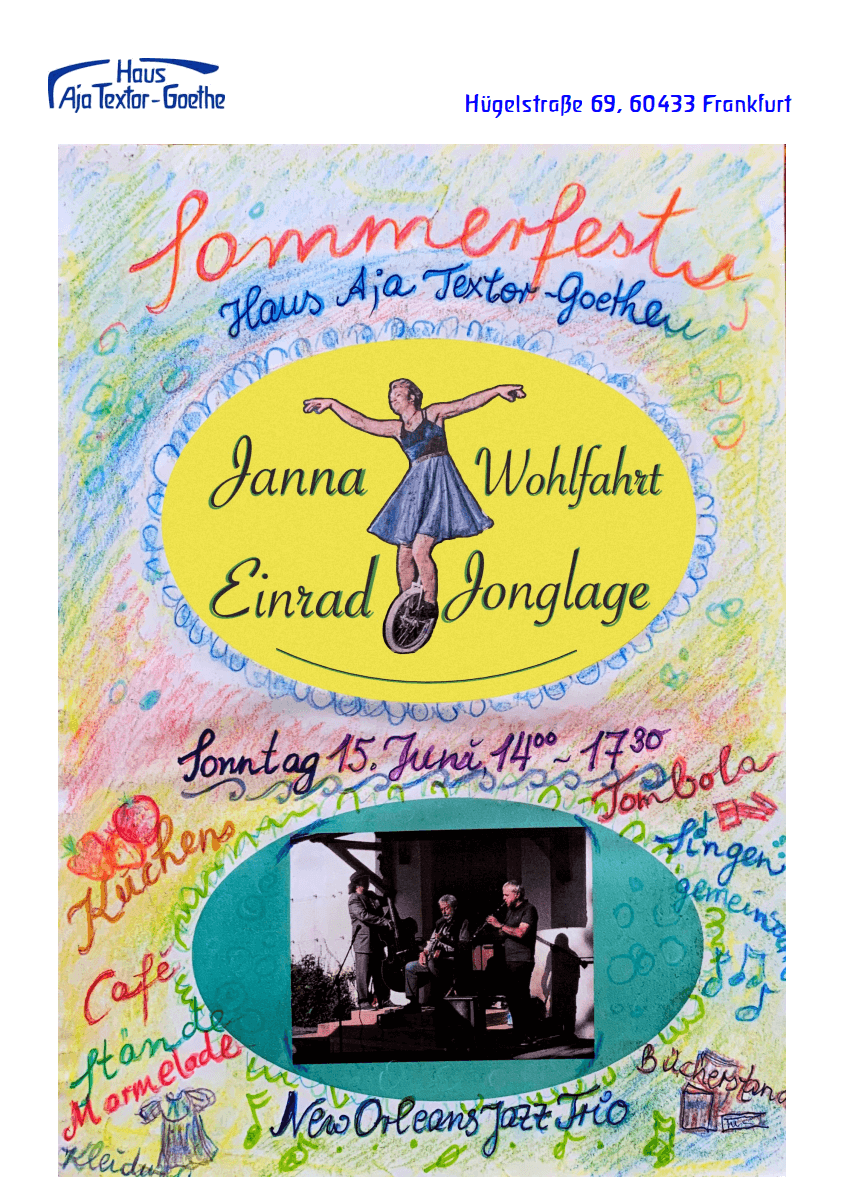 Haus
Aja Textor-Goethe
Hügelstraße 69, 60433 Frankfurt
Sommerfest
Haus Aja Textor-Goethe
Janna Wohlfahrt
Einrad Jonglage
Sonntag 15. Juni, 14⁰⁰ - 17³⁰
Tombola
Kuchen
Singen
gemeinsam
Café
Stände
Marmelade
Bücherstand
New Orleans Jazz Trio
Kleidu